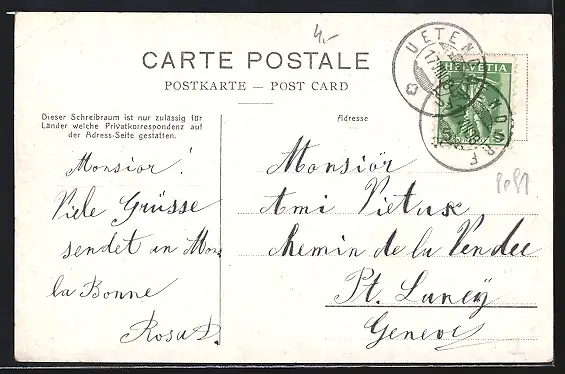 4.-
CARTE POSTALE
POSTKARTE — POST CARD
Dieser Schreibraum ist nur zulässig für
Länder welche Privatkorrespondenz auf
der Adress-Seite gestatten.
Adresse
HELVETIA
5
Monsior!
Viele Grüsse
sendet in Mon
la Bonne
Rosa D.
Monsiör
Ami Vietux
chemin de la Vendee
Pt. Lancÿ
Geneve